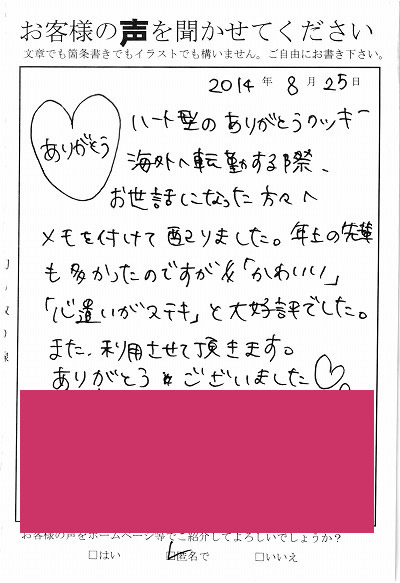 お客様の声を聞かせてください
文章でも箇条書きでもイラストでも構いません。ご自由にお書き下さい。
2014年 8月 25日
ありがとう
ハート型のありがとうクッキー
海外へ転勤する際、
お世話になった方々へ
メモを付けて配りました。年上の先輩
も多かったのですが「かわいい」
「心遣いがステキ」と大好評でした。
また、利用させて頂きます。
ありがとうございました♡。
お客様の声をホームページ等でご紹介してよろしいでしょうか？
□はい □匿名で □いいえ